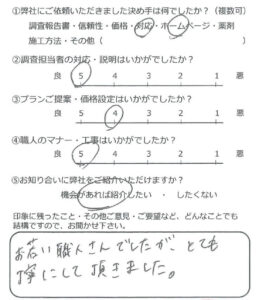 ①弊社にご依頼いただきました決め手は何でしたか?(複数可)
調査報告書・信頼性・価格・対応・ホームページ・薬剤
施工方法・その他(
②調査担当者の対応・説明はいかがでしたか?
良 5 4 3 2 1 悪
③プランご提案・価格設定はいかがでしたか?
良 5 4 3 2 1 悪
④職人のマナー・工事はいかがでしたか?
良 5 4 3 2 1 悪
⑤お知り合いに弊社をご紹介いただけますか?
機会があれば紹介したい ・ したくない
印象に残ったこと・その他ご意見・ご要望など、どんなことでも
結構ですので、お聞かせ下さい。
お若い職人さんでしたが、とても
丁寧にして頂きました。